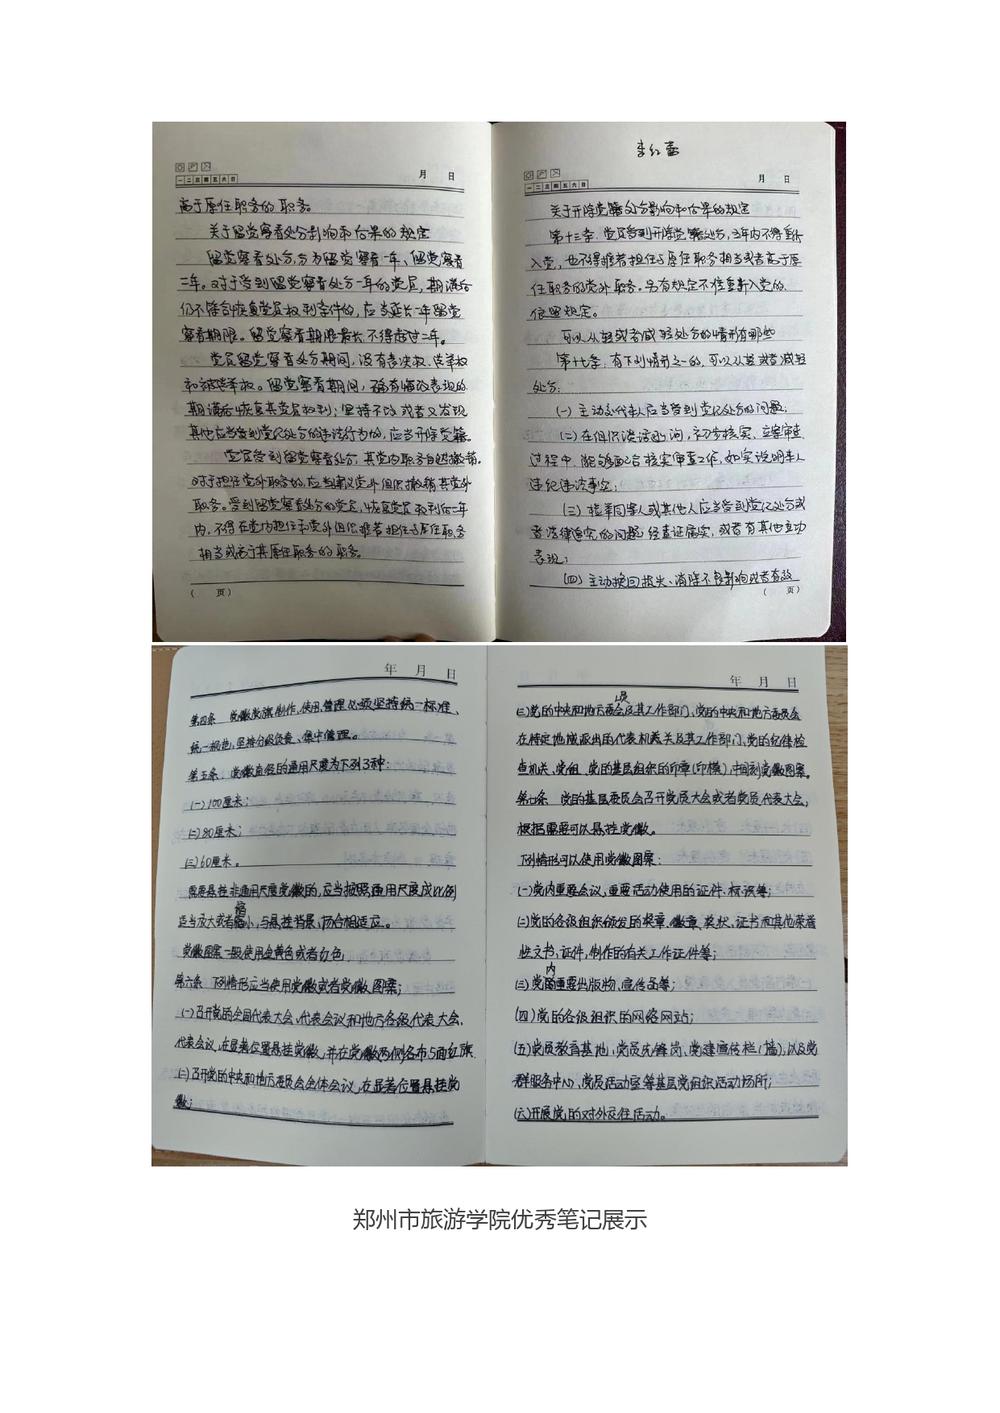 月 日
一二三四五六日
高于原任职务的职务。
关于留党察看处分影响和后果的规定
留党察看处分,分为留党察看一年、留党察看
二年。对于受到留党察看处分一年的党员,期满后
仍不符合恢复党员权利条件的,应当延长一年留党
察看期限。留党察看期限最长不得超过二年。
党员留党察看处分期间,没有表决权、选举权
和被选举权。留党察看期间,确有悔改表现的
期满后恢复其党员权利;坚持不改或者又发现
其他应当受到党纪处分的违法行为的,应当开除党籍。
党员受到留党察看处分,其党内职务自然撤销。
对于担任党外职务的,应当建议党外组织撤销其党外
职务。受到留党察看处分的党员,恢复党员权利后二年
内,不得在党内担任和党外组织推荐担任与原任职务
相当或高于其原任职务的职务。
( 页)
李红蕾
月 日
一二三四五六日
关于开除党籍处分影响和后果的规定
第十三条:党员受到开除党籍处分,五年内不得重新
入党,也不得推荐担任与原任职务相当或者高于原
任职务的党外职务。另有规定不准重新入党的,
依照规定。
可以从轻或者减轻处分的情形有哪些
第十七条:有下列情形之一的,可以从轻或者减轻
处分:
(一)主动交代本人应当受到党纪处分的问题;
(二)在组织谈话函询,初步核实、立案审查
过程中,能够配合核实审查工作,如实说明本人
违纪违法事实;
(三)检举同案人或其他人应当受到党纪处分或
者法律追究的问题,经查证属实,或者有其他立功
表现;
(四)主动挽回损失、消除不良影响或者有效
( 页)
年 月 日
第四条 党徽党旗制作、使用、管理必须坚持统一标准、
统一规范,坚持分级负责、集中管理。
第五条 党徽直径的通用尺度为下列3种:
(一)100厘米;
(二)80厘米;
(三)60厘米。
需要悬挂非通用尺度党徽的,应当按照通用尺度成比例
适当放大或者缩小,与悬挂背景、场合相适应。
党徽图案一般使用金黄色或者红色;
第六条 下列情形应当使用党徽或者党徽图案;
(一)召开党的全国代表大会、代表会议和地方各级代表大会、
代表会议,在显著位置悬挂党徽,并在党徽两侧各布5面红旗
(二)召开党的中央和地方委员会全体会议,在显著位置悬挂党
徽;
年 月 日
(三)党的中央和地方委员会及其工作部门、党的中央和地方委员会
在特定地域派出的代表机关及其工作部门、党的纪律检
查机关、党组、党的基层组织的印章(印模),中间刻党徽图案。
第七条 党的基层委员会召开党员大会或者党员代表大会,
根据需要可以悬挂党徽。
下列情形可以使用党徽图案:
(一)党内重要会议、重要活动使用的证件、标识等;
(二)党的各级组织颁发的奖章、徽章、奖状、证书和其他荣誉
性文书、证件,制作的有关工作证件等;
(三)党内重要出版物、宣传品等;
(四)党的各级组织的网络网站;
(五)党员教育基地,党员先锋岗、党建宣传栏(墙),以及党
群服务中心、党员活动室等基层党组织活动场所;
(六)开展党的对外交往活动。
郑州市旅游学院优秀笔记展示